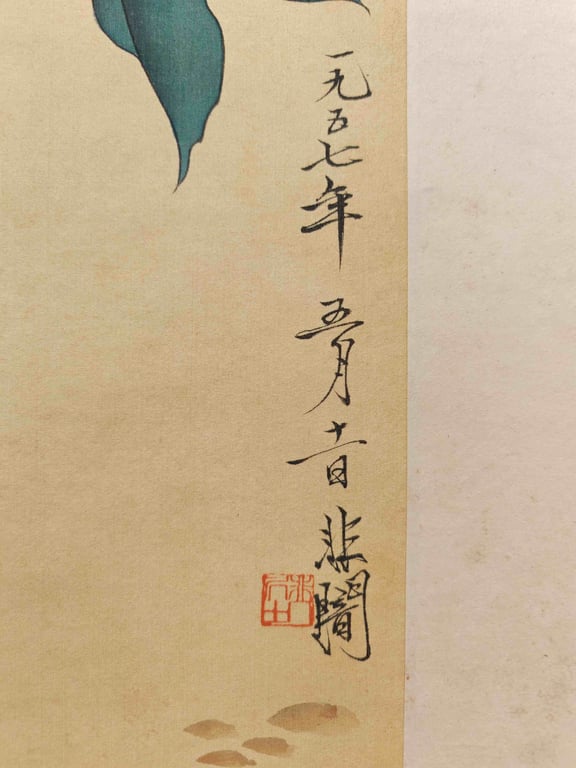 一九五七年五月十一日非闇